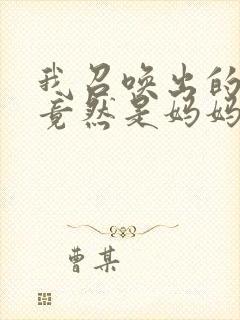 我召唤出的
竟然是妈妈
曹某